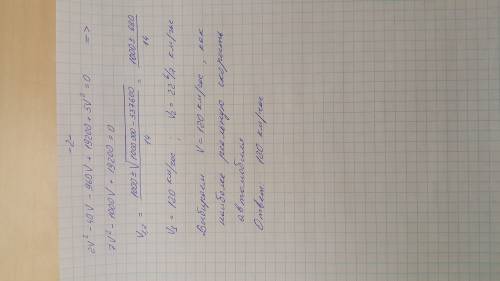 -2-
2V² - 40V - 960V + 19200 + 5V² = 0 =>
7V² - 1000V + 19200 = 0
V₁,₂ = (1000 ± √(1000000 - 537600))/14 = (1000 ± 680)/14
V₁ = 120 км/час ; V₂ = 22 6/7 км/час
Выбираем V = 120 км/час, как
наиболее реальную скорость
автомобиля
Ответ: 120 км/час